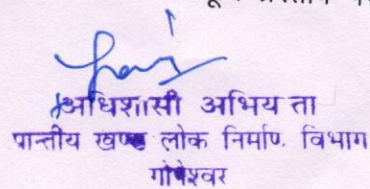 अधिशासी अभियन्ता
प्रान्तीय खण्ड लोक निर्माण विभाग
गोपेश्वर